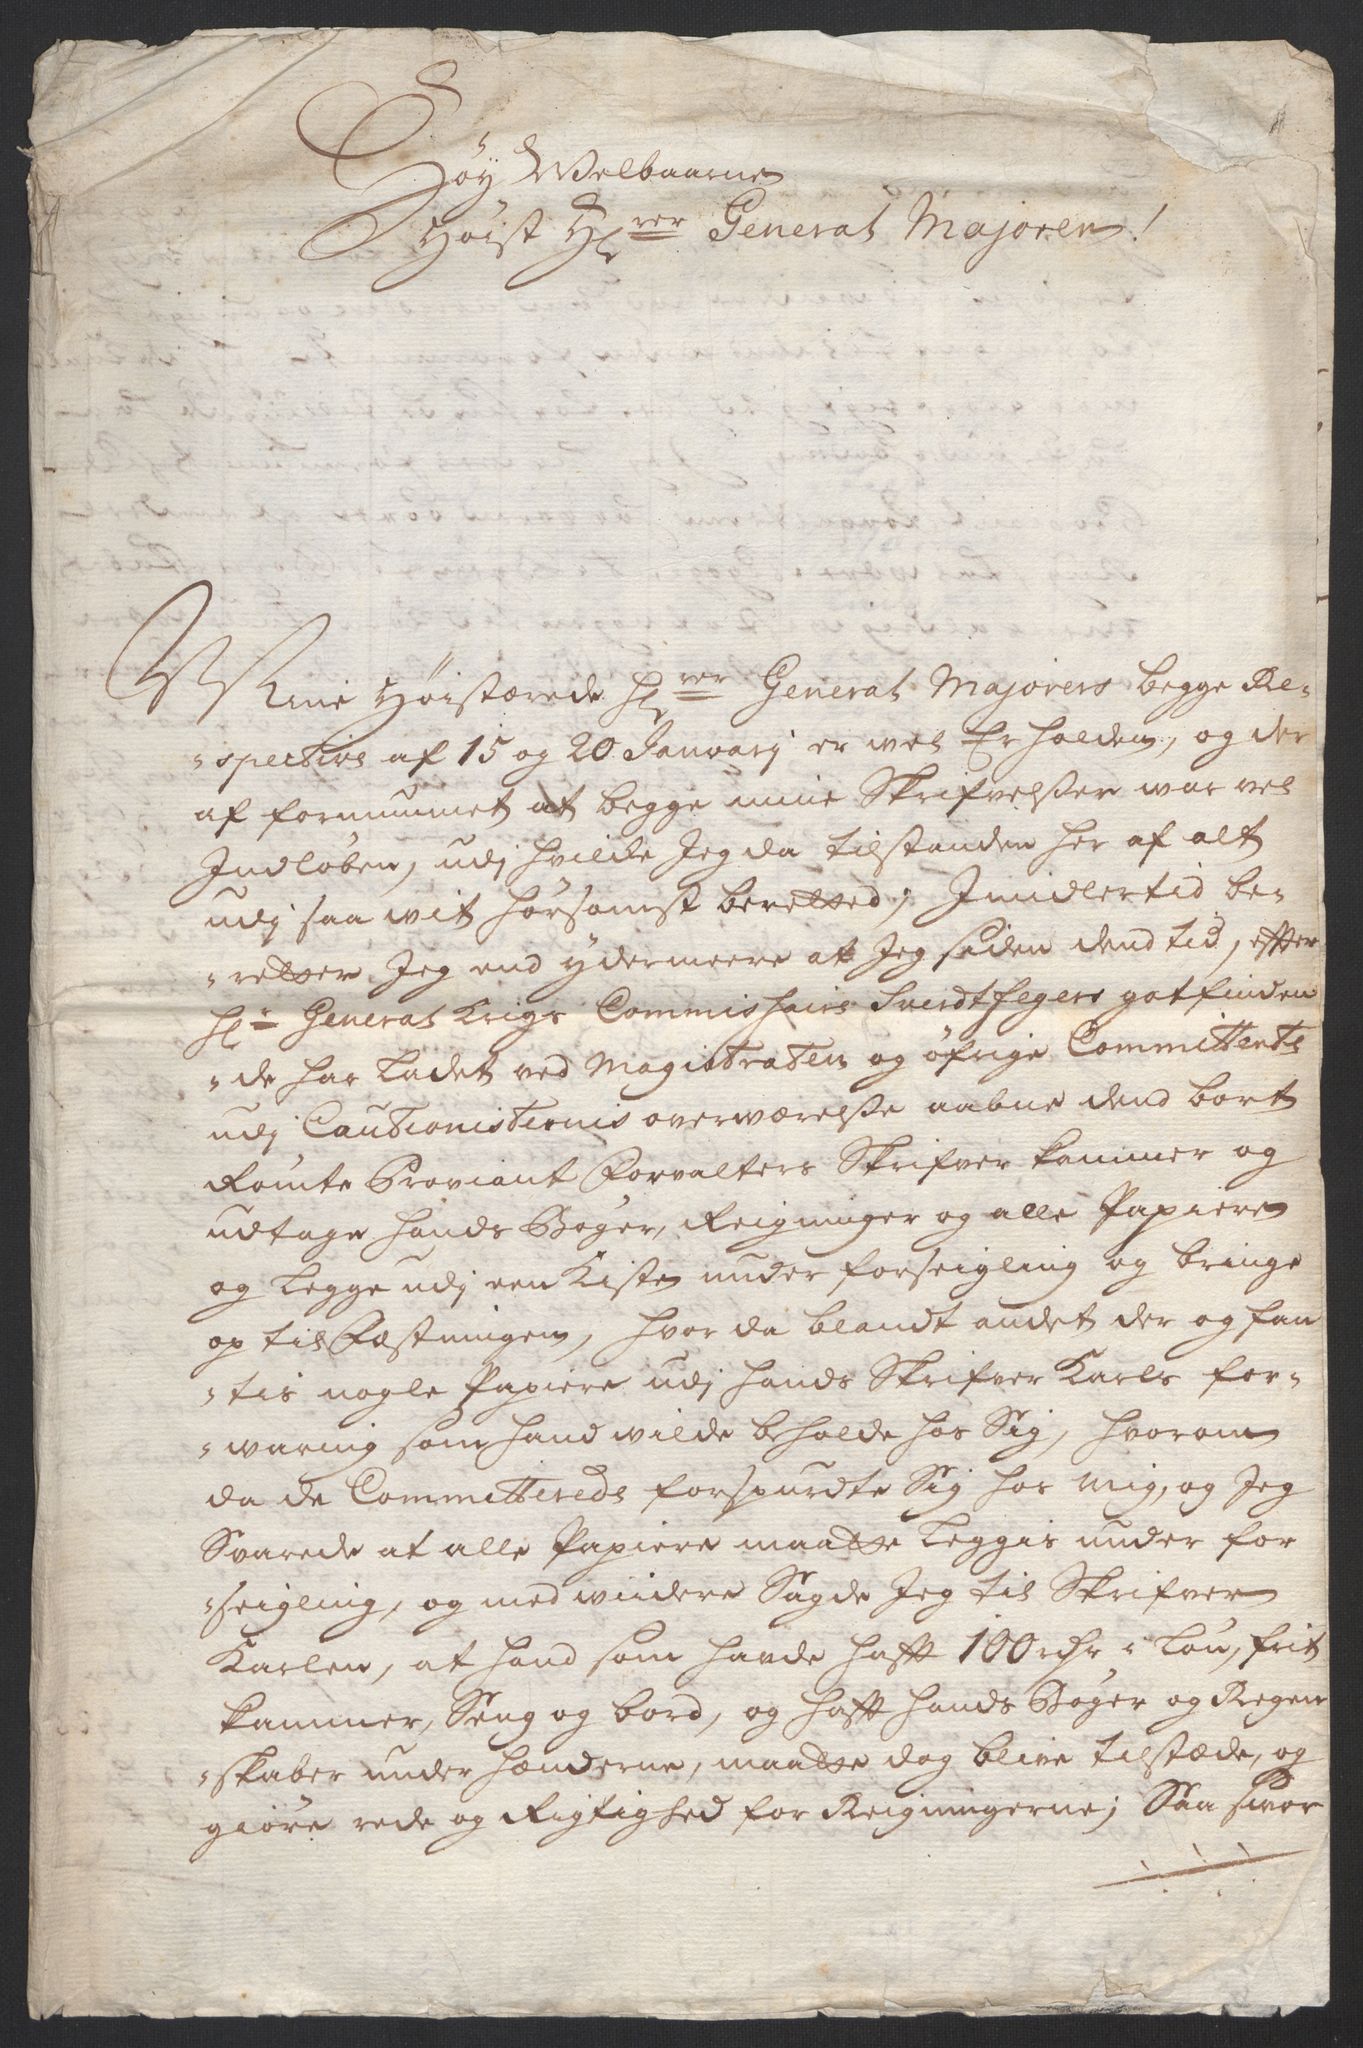 Høy Welbaarne
Høist H:rer General Majoren!
Mine Høistærede H:rer General Majorers begge Re-
-spective af 15 og 20 Januarj er vel Erholden, og der
af fornummet at begge mine Skrifvelßer war vel
Indløben, udj hvilcke Jeg da tilstanden her af alt
udj saa wit hørsomst beretted; Imidlertid be-
-retter Jeg end ydermeere at Jeg siden dend tid, efter
Hr: General Krigs Commishairs Suerdtfegers gotfinden
-de har Ladet ved Magistraten og øfrige Committerte
udj Cautionisternis overwærelße aabne dend bort
Rømte Proviant Forvalters Skrifver kammer og
udtage hands Bøger, Reigninger og alle Papiere
og Legge udj een Kiste under forseigling og bringe
op til Fæstningen, hvor da blandt andet der og fan
-tis nogle Papiere udj hands Skrifver Karls for-
-waring som hand wilde beholde hos Sig, hvorom
da de Committerede forspurdte Sig hos mig, og Jeg
Svarede at alle Papiere maatte Leggis under for
-seigling, og med widere Sagde Jeg til Skrifver
Karlen, at hand som hafde hafft 100 rdr Løn, frit
kammer, Seng og bord, og hafft hands Bøger og Regen
-skaber under hænderne, maatte dog blive tilstæde, og
giøre rede og Rigtighed for Reigningerne; Saa swor